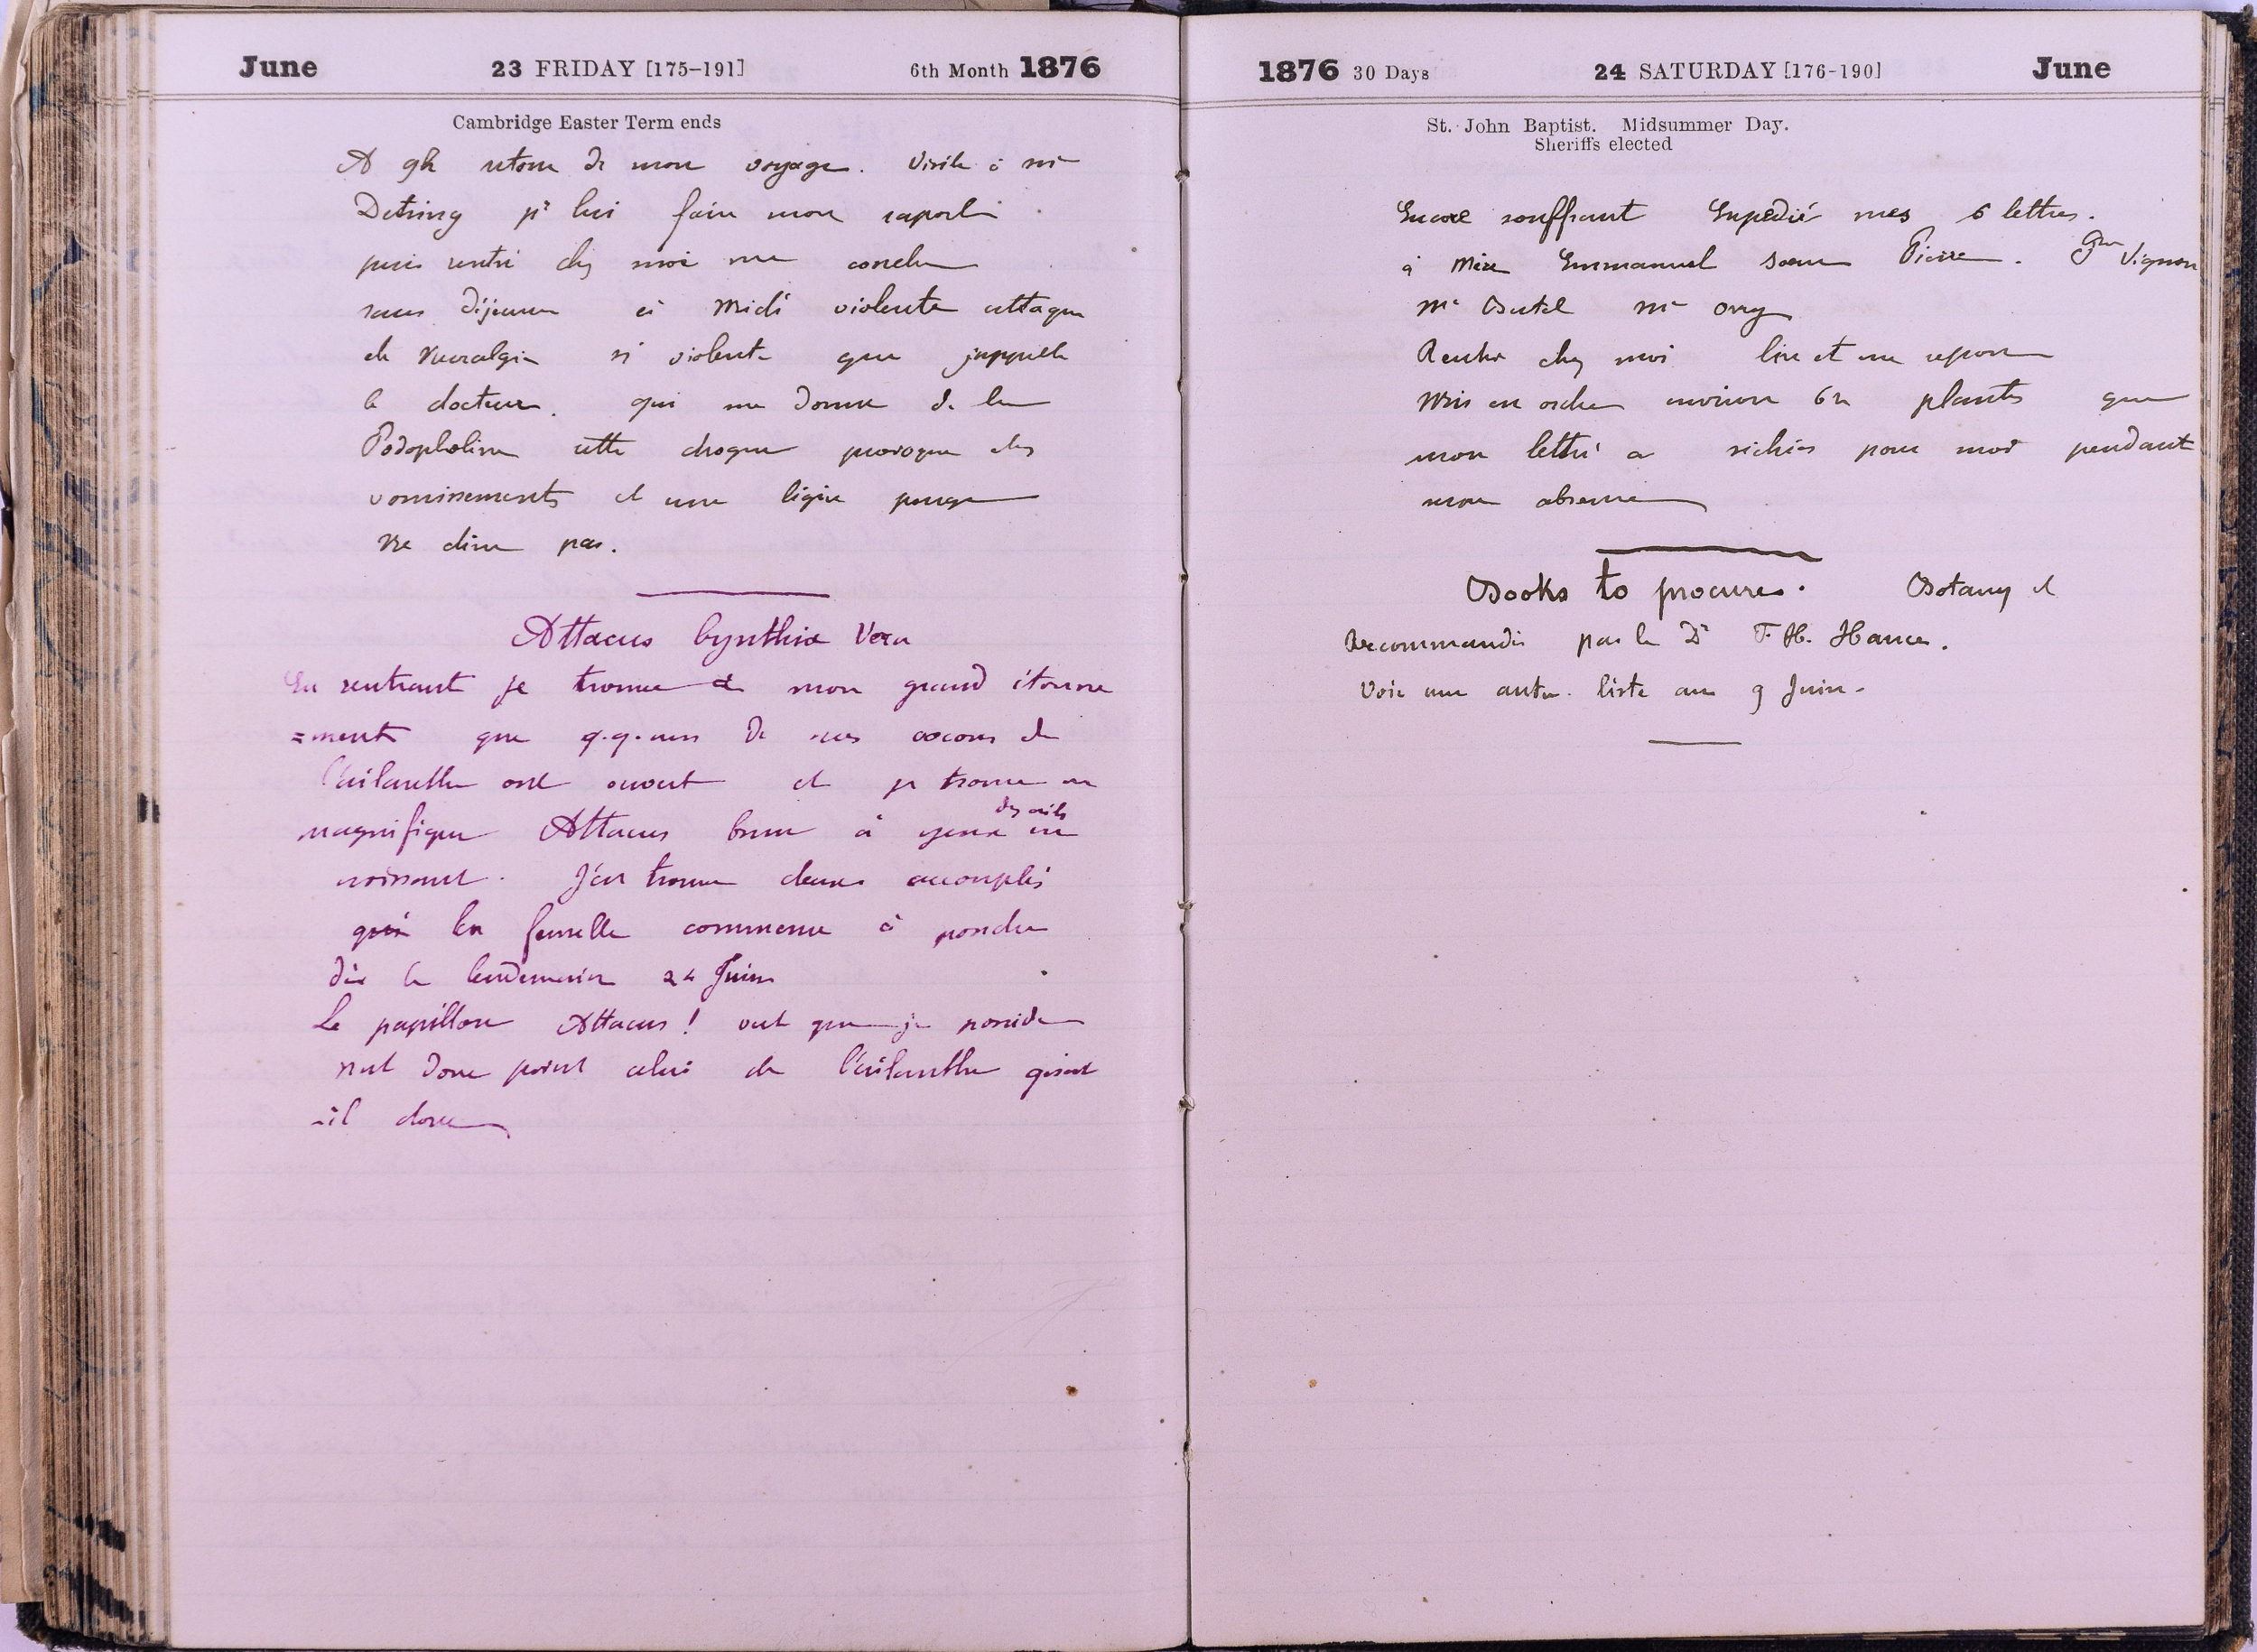 June 23 FRIDAY [175-191] 6th Month 1876
Cambridge Easter Term ends
A 9h retour de mon voyage. Visite à Mr
Detring pr lui faire mon raport
puis rentré chez moi me couche
sans déjeuner à Midi violente attaque
de Nevralgie si violente que jappelle
le docteur. qui me donne de la
Podopholine cette drogue provoque des
vomissements et une légère purge
Ne dine pas.
Attacus Cynthia Vera
En rentrant je trouve à mon grand étonne
=ment que q.q.uns de mes cocons de
l'ailanthe ont ouvert et je trouve un
magnifique Attacus brun à yeux en
des ailes
croissant. J'en trouve deux accouplés
qui la femelle commence à pondre
dès le lendemain 24 Juin
Le papillon Attacus! vert que je possède
nest donc point celui de l'ailanthe quiest
-il donc
1876 30 Days 24 SATURDAY [176-190] June
St. John Baptist. Midsummer Day.
Sheriffs elected
Encore souffrant Expédié mes 6 lettres.
à Mère Emmanuel Soeur Pierre. Vignon
Mr Butel Mr Orry
Rentre chez moi lire et me repose
Mis en ordre environ 60 plantes que
mon lettré a séchées pour moi pendant
mon absence
Books to procures. Botany et
Recommandés par le Dr F. H. Hance.
Voir une autre liste au 9 Juin.